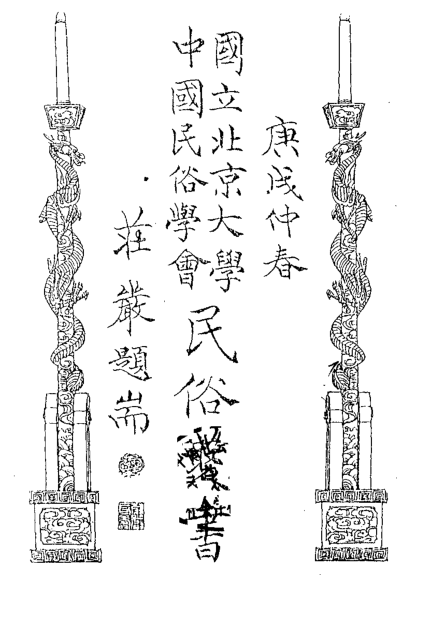 庚戌仲春
國立北京大學
中國民俗學會
民俗書
莊嚴題耑